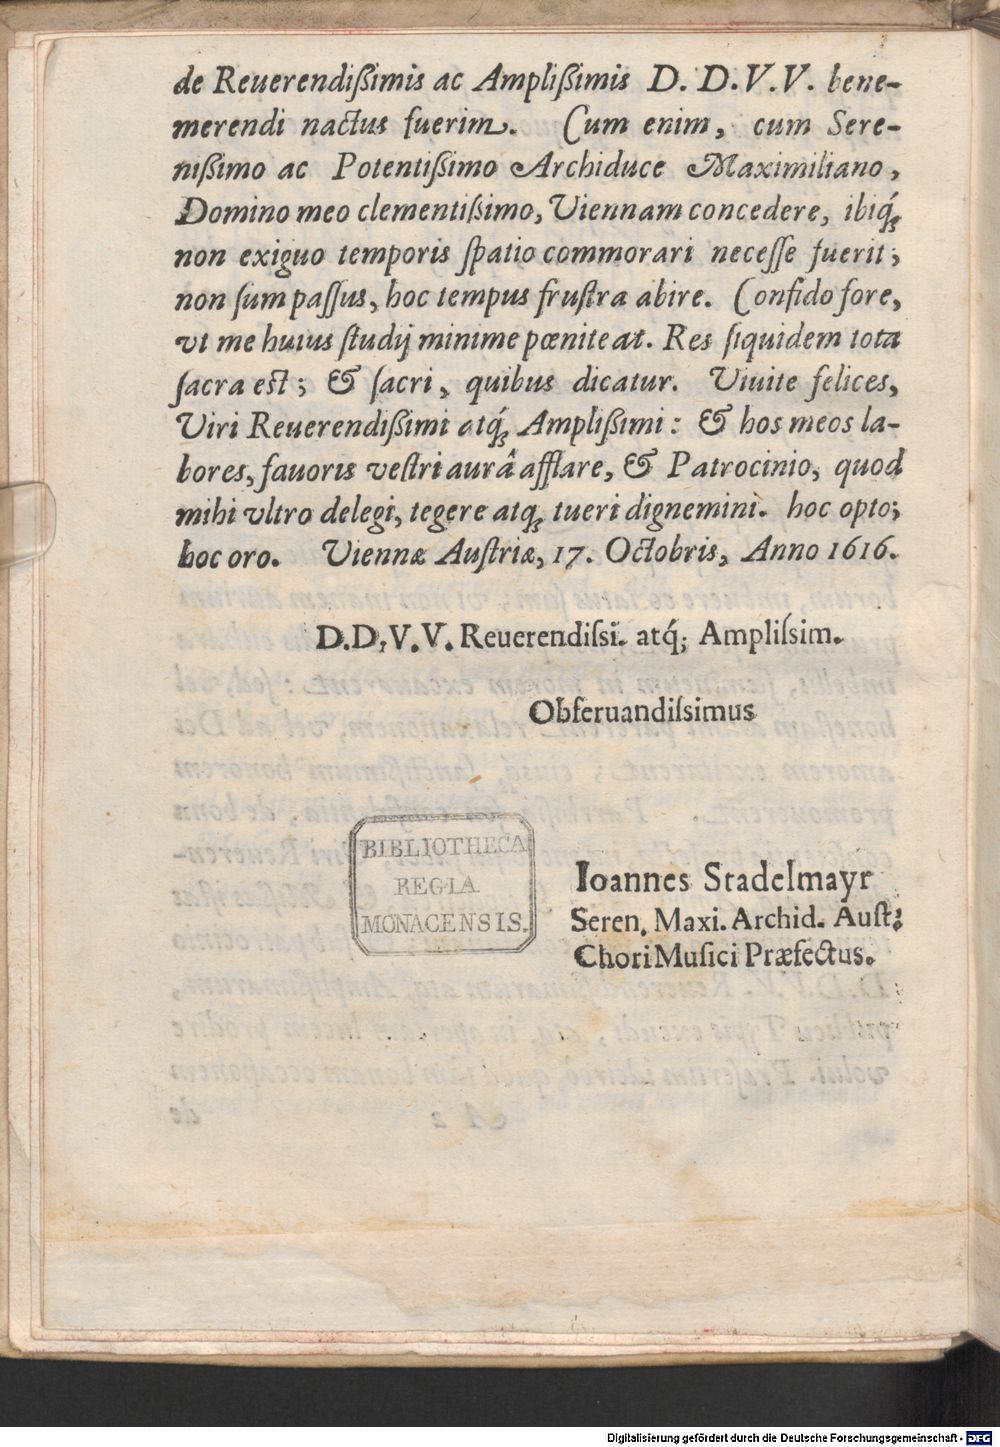 de Reuerendißimis ac Amplißimis D. D. V. V. bene-
merendi nactus fuerim. Cum enim, cum Sere-
nißimo ac Potentißimo Archiduce Maximiliano,
Domino meo clementißimo, Viennam concedere, ibiq́;
non exiguo temporis ſpatio commorari neceſſe fuerit;
non ſum paſſus, hoc tempus fruſtra abire. Confido fore,
vt me huius ſtudij minime pœniteat. Res ſiquidem tota
ſacra est; & ſacri, quibus dicatur. Viuite felices,
Viri Reuerendißimi atq́; Amplißimi: & hos meos la-
bores, fauoris veſtri aurâ afflare, & Patrocinio, quod
mihi vltro delegi, tegere atq; tueri dignemini. hoc opto;
hoc oro. Viennæ Auſtriæ, 17. Octobris, Anno 1616.
D. D. V. V. Reuerendiſsi. atq́; Ampliſsim.
Obſeruandiſsimus
BIBLIOTHECA
REGIA
MONACENSIS.
Ioannes Stadelmayr
Seren. Maxi. Archid. Auſt:
Chori Muſici Præfectus.
Digitalisierung gefördert durch die Deutsche Forschungsgemeinschaft - DFG